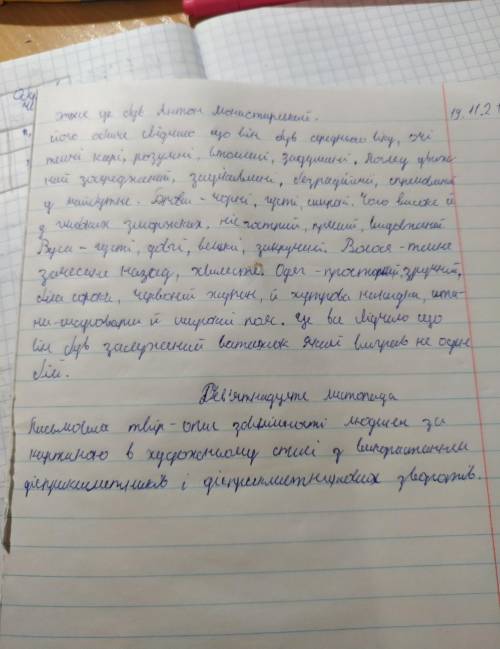 отже це був Антон Монастирський. 19.11.2
його обличчя свідчило що він був середнього віку, очі
темні карі, розумні, втомлені, задумані, погляд уваж
ний зосереджений, зацікавлений, безрадісний, спрямований
у майбутнє. Брови - чорні, густі, широкі. Чоло високе й
у глибоких зморшках, ніс гострий, прямий, видовжений
Вуса - густі, довгі, великі, закручені. Волося - темне
зачесане назад, хвилясте. Одяг - просторий, зручний,
біла сорочка, червоний жупан, й хутрова накидка, шта-
ни-шаровари й широкий пояс. Це все свідчило що
він був заслужений ватажок який виграв не один
бій.
Дев'ятнадцяте листопада
Письмова твір-опис зовнішності людини за
картиною в художньому стилі з використанням
дієприкметників і дієприкметникових зворотів.